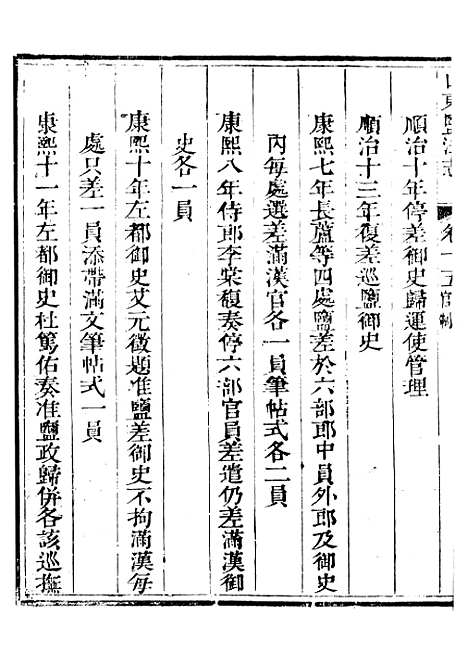 山東鹽法志 卷一五官制
順治十年停差御史歸運使管理
順治十三年復差巡鹽御史
康熙七年長蘆等四處鹽差於六部郎中員外郎及御史
內每處選差滿漢官各一員筆帖式各二員
康熙八年侍郎李棠馥奏停六部官員差遣仍差滿漢御
史各一員
康熙十年左都御史艾元徵題准鹽差御史不拘滿漢每
處只差一員添帶滿文筆帖式一員
康熙十一年左都御史杜篤佑奏准鹽政歸併各該巡撫